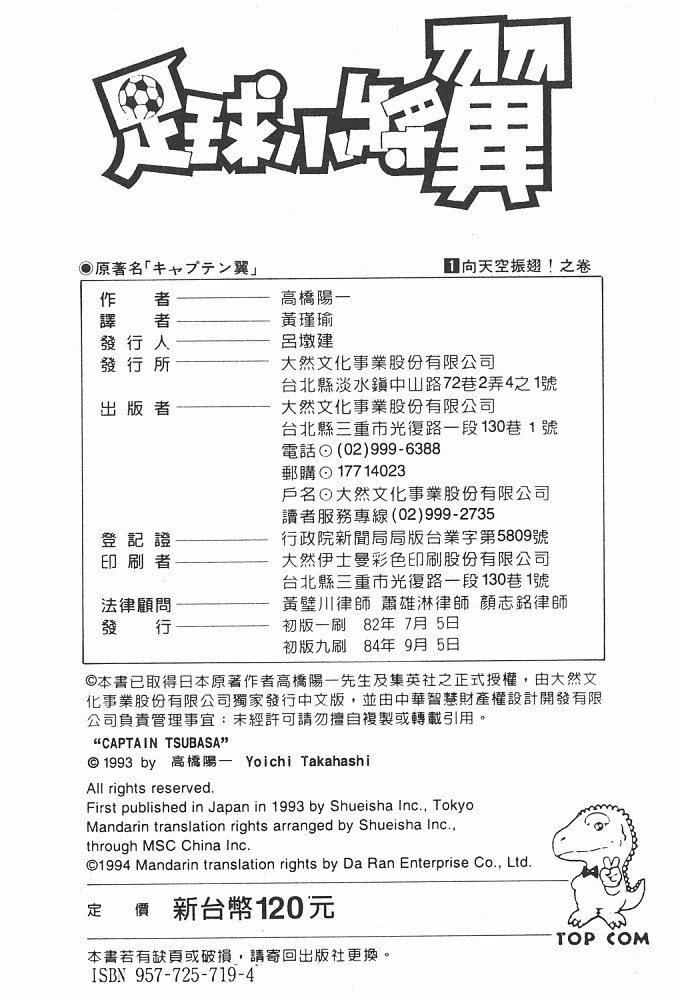 足球小將翼
◉原著名「キャプテン翼」 1向天空振翅！之卷
作者 高橋陽一
譯者 黃瑾瑜
發行人 呂墩建
發行所 大然文化事業股份有限公司
台北縣淡水鎮中山路72巷2弄4之1號
出版者 大然文化事業股份有限公司
台北縣三重市光復路一段130巷1號
電話⊙(02)999-6388
郵購⊙17714023
戶名⊙大然文化事業股份有限公司
讀者服務專線(02)999-2735
登記證 行政院新聞局局版台業字第5809號
印刷者 大然伊士曼彩色印刷股份有限公司
台北縣三重市光復路一段130巷1號
法律顧問 黃璧川律師 蕭雄淋律師 顏志銘律師
發行 初版一刷 82年 7月 5日
初版九刷 84年 9月 5日
©本書已取得日本原著作者高橋陽一先生及集英社之正式授權，由大然文
化事業股份有限公司獨家發行中文版，並由中華智慧財產權設計開發有限
公司負責管理事宜；未經許可請勿擅自複製或轉載引用。
“CAPTAIN TSUBASA”
© 1993 by 高橋陽一 Yoichi Takahashi
All rights reserved.
First published in Japan in 1993 by Shueisha Inc., Tokyo
Mandarin translation rights arranged by Shueisha Inc.,
through MSC China Inc.
©1994 Mandarin translation rights by Da Ran Enterprise Co., Ltd.
定價 新台幣120元
TOP COM
本書若有缺頁或破損，請寄回出版社更換。
ISBN 957-725-719-4